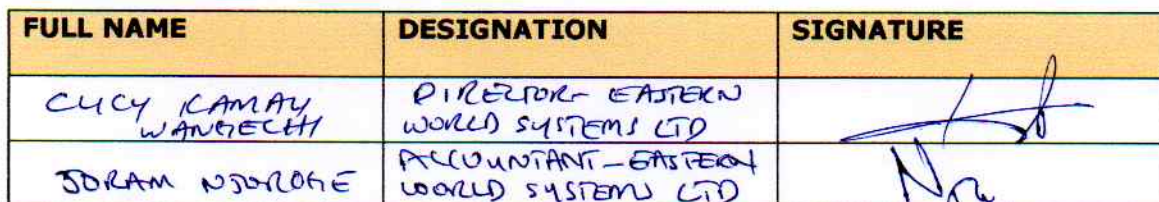 FULL NAME DESIGNATION SIGNATURE
CUCY KAMAU
WANGECHI
DIRECTOR- EASTERN
WORLD SYSTEMS LTD
JORAM NJOROGE
ACCOUNTANT-EASTERN
WORLD SYSTEMS LTD